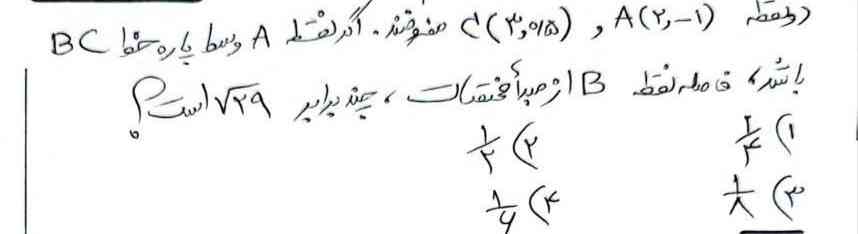 دو نقطه A(۲,-۱) و C(۳,۰/۵) مفروضند. اگر نقطه A وسط پاره خط BC
باشد، فاصله نقطه B از مبدأ مختصات، چند برابر √۲۹ است؟
۱) ۱/۴ ۲) ۱/۲
۳) ۱/۸ ۴) ۱/۶